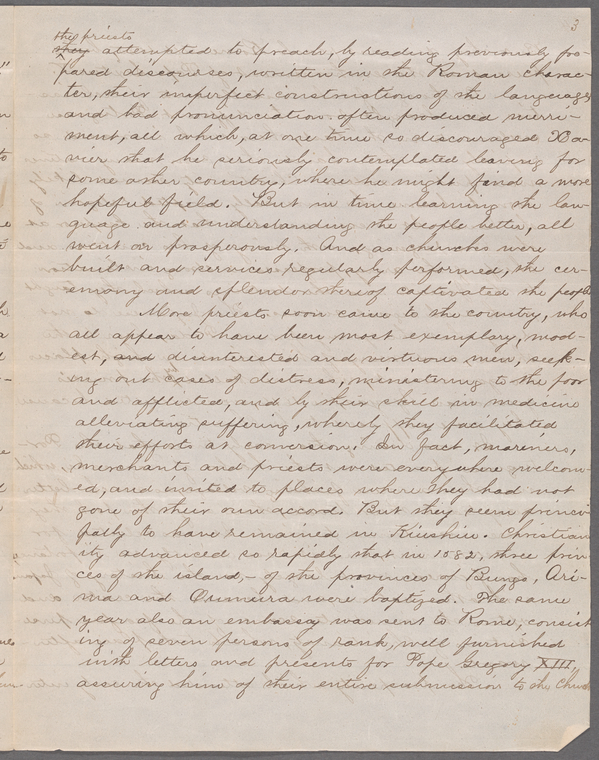 3
the priests
they attempted to preach, by reading previously pre-
pared discourses, written in the Roman charac-
ter, their imperfect constructions of the languages
and bad pronunciation often produced merri-
ment, all which, at one time so discouraged Xa-
vier that he seriously contemplated leaving for
some other country, where he might find a more
hopeful field. But in time learning the lan-
guage and understanding the people better, all
went on prosperously. And as churches were
built and services regularly performed, the cer-
emony and splendor thereof captivated the people
More priests soon came to the country, who
all appear to have been most exemplary, mod-
est, and disinterested and virtuous men, seek-
ing out cases of distress, ministering to the poor
and afflicted, and by their skill in medicine
alleviating suffering, whereby they facilitated
their efforts at conversion. In fact, mariners,
merchants and priests were everywhere welcom-
ed, and invited to places where they had not
gone of their own accord. But they seem princi
pally to have remained in Kiushiu. Christian
ity advanced so rapidly that in 1582, three prin
ces of the island,- of the provinces of Bungo, Ari-
ma and Oumura were baptized. The same
year also an embassy was sent to Rome, consist
ing of seven persons of rank, well furnished
with letters and presents for Pope Gregory XIII,
assuring him of their entire submission to the Church